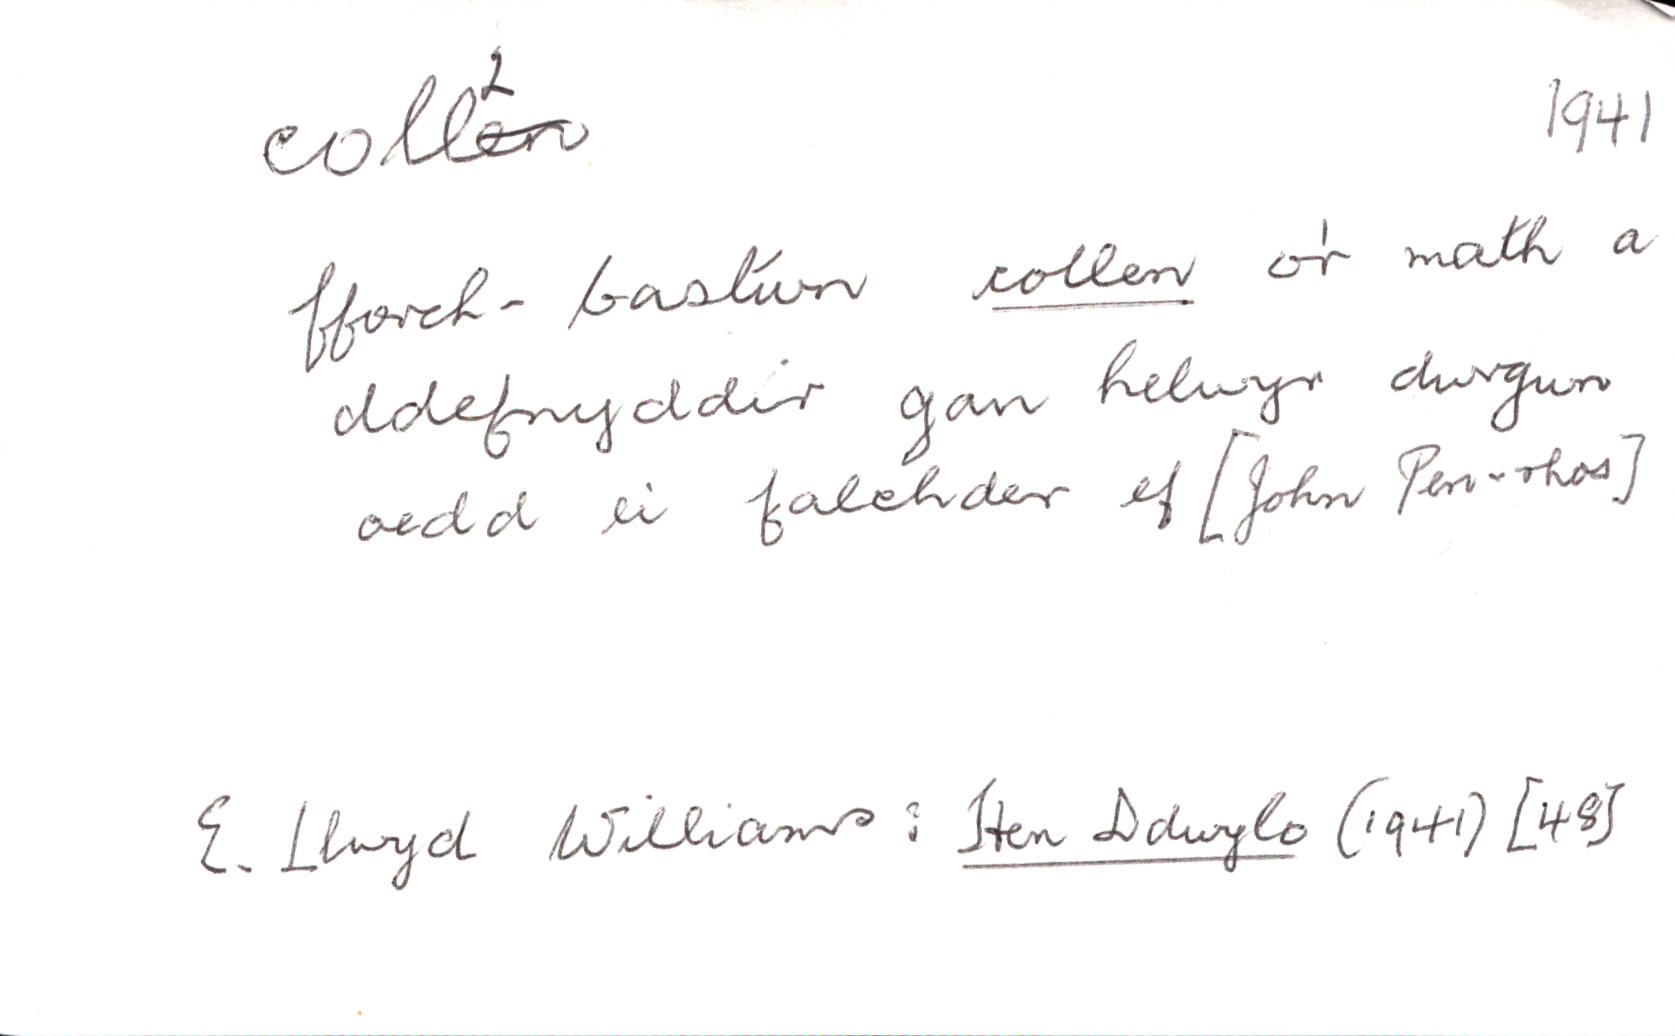 collen²
1941
fforch-bastwn collen o'r math a
ddefnyddir gan helwyr dwrgwn
oedd ei falchder ef [John Pen-rhos]
E. Llwyd Williams : Hen Ddwylo (1941) [48]